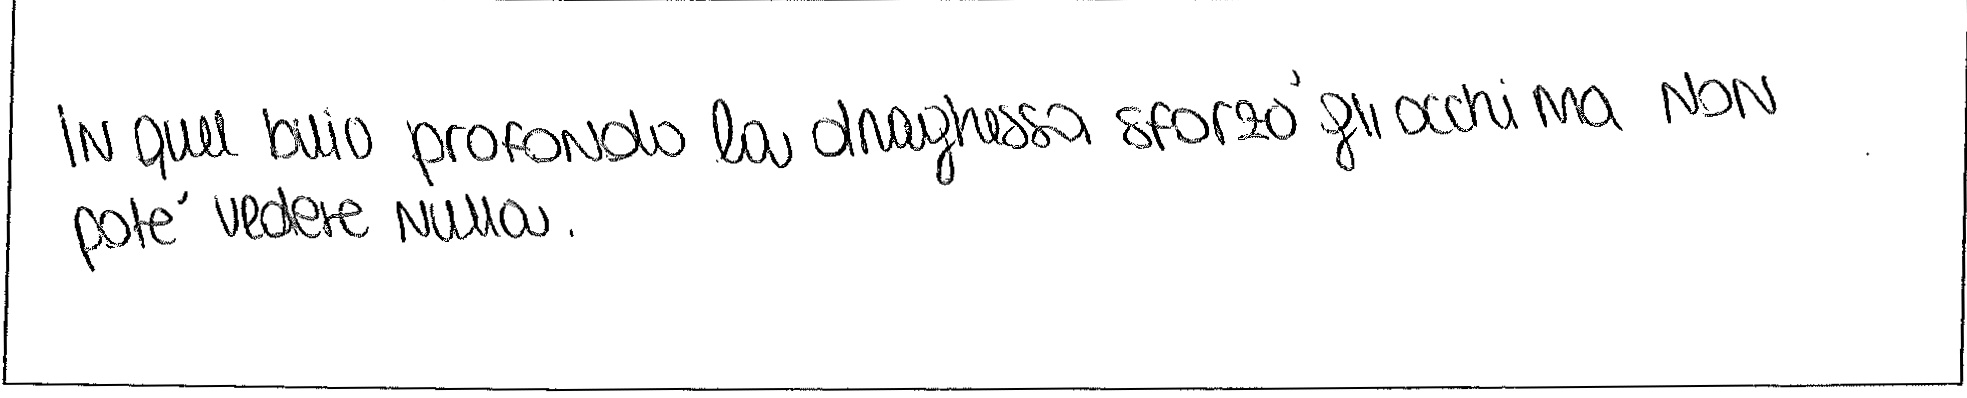 In quel buio profondo la draghessa sforzò gli occhi ma non
poté vedere nulla.